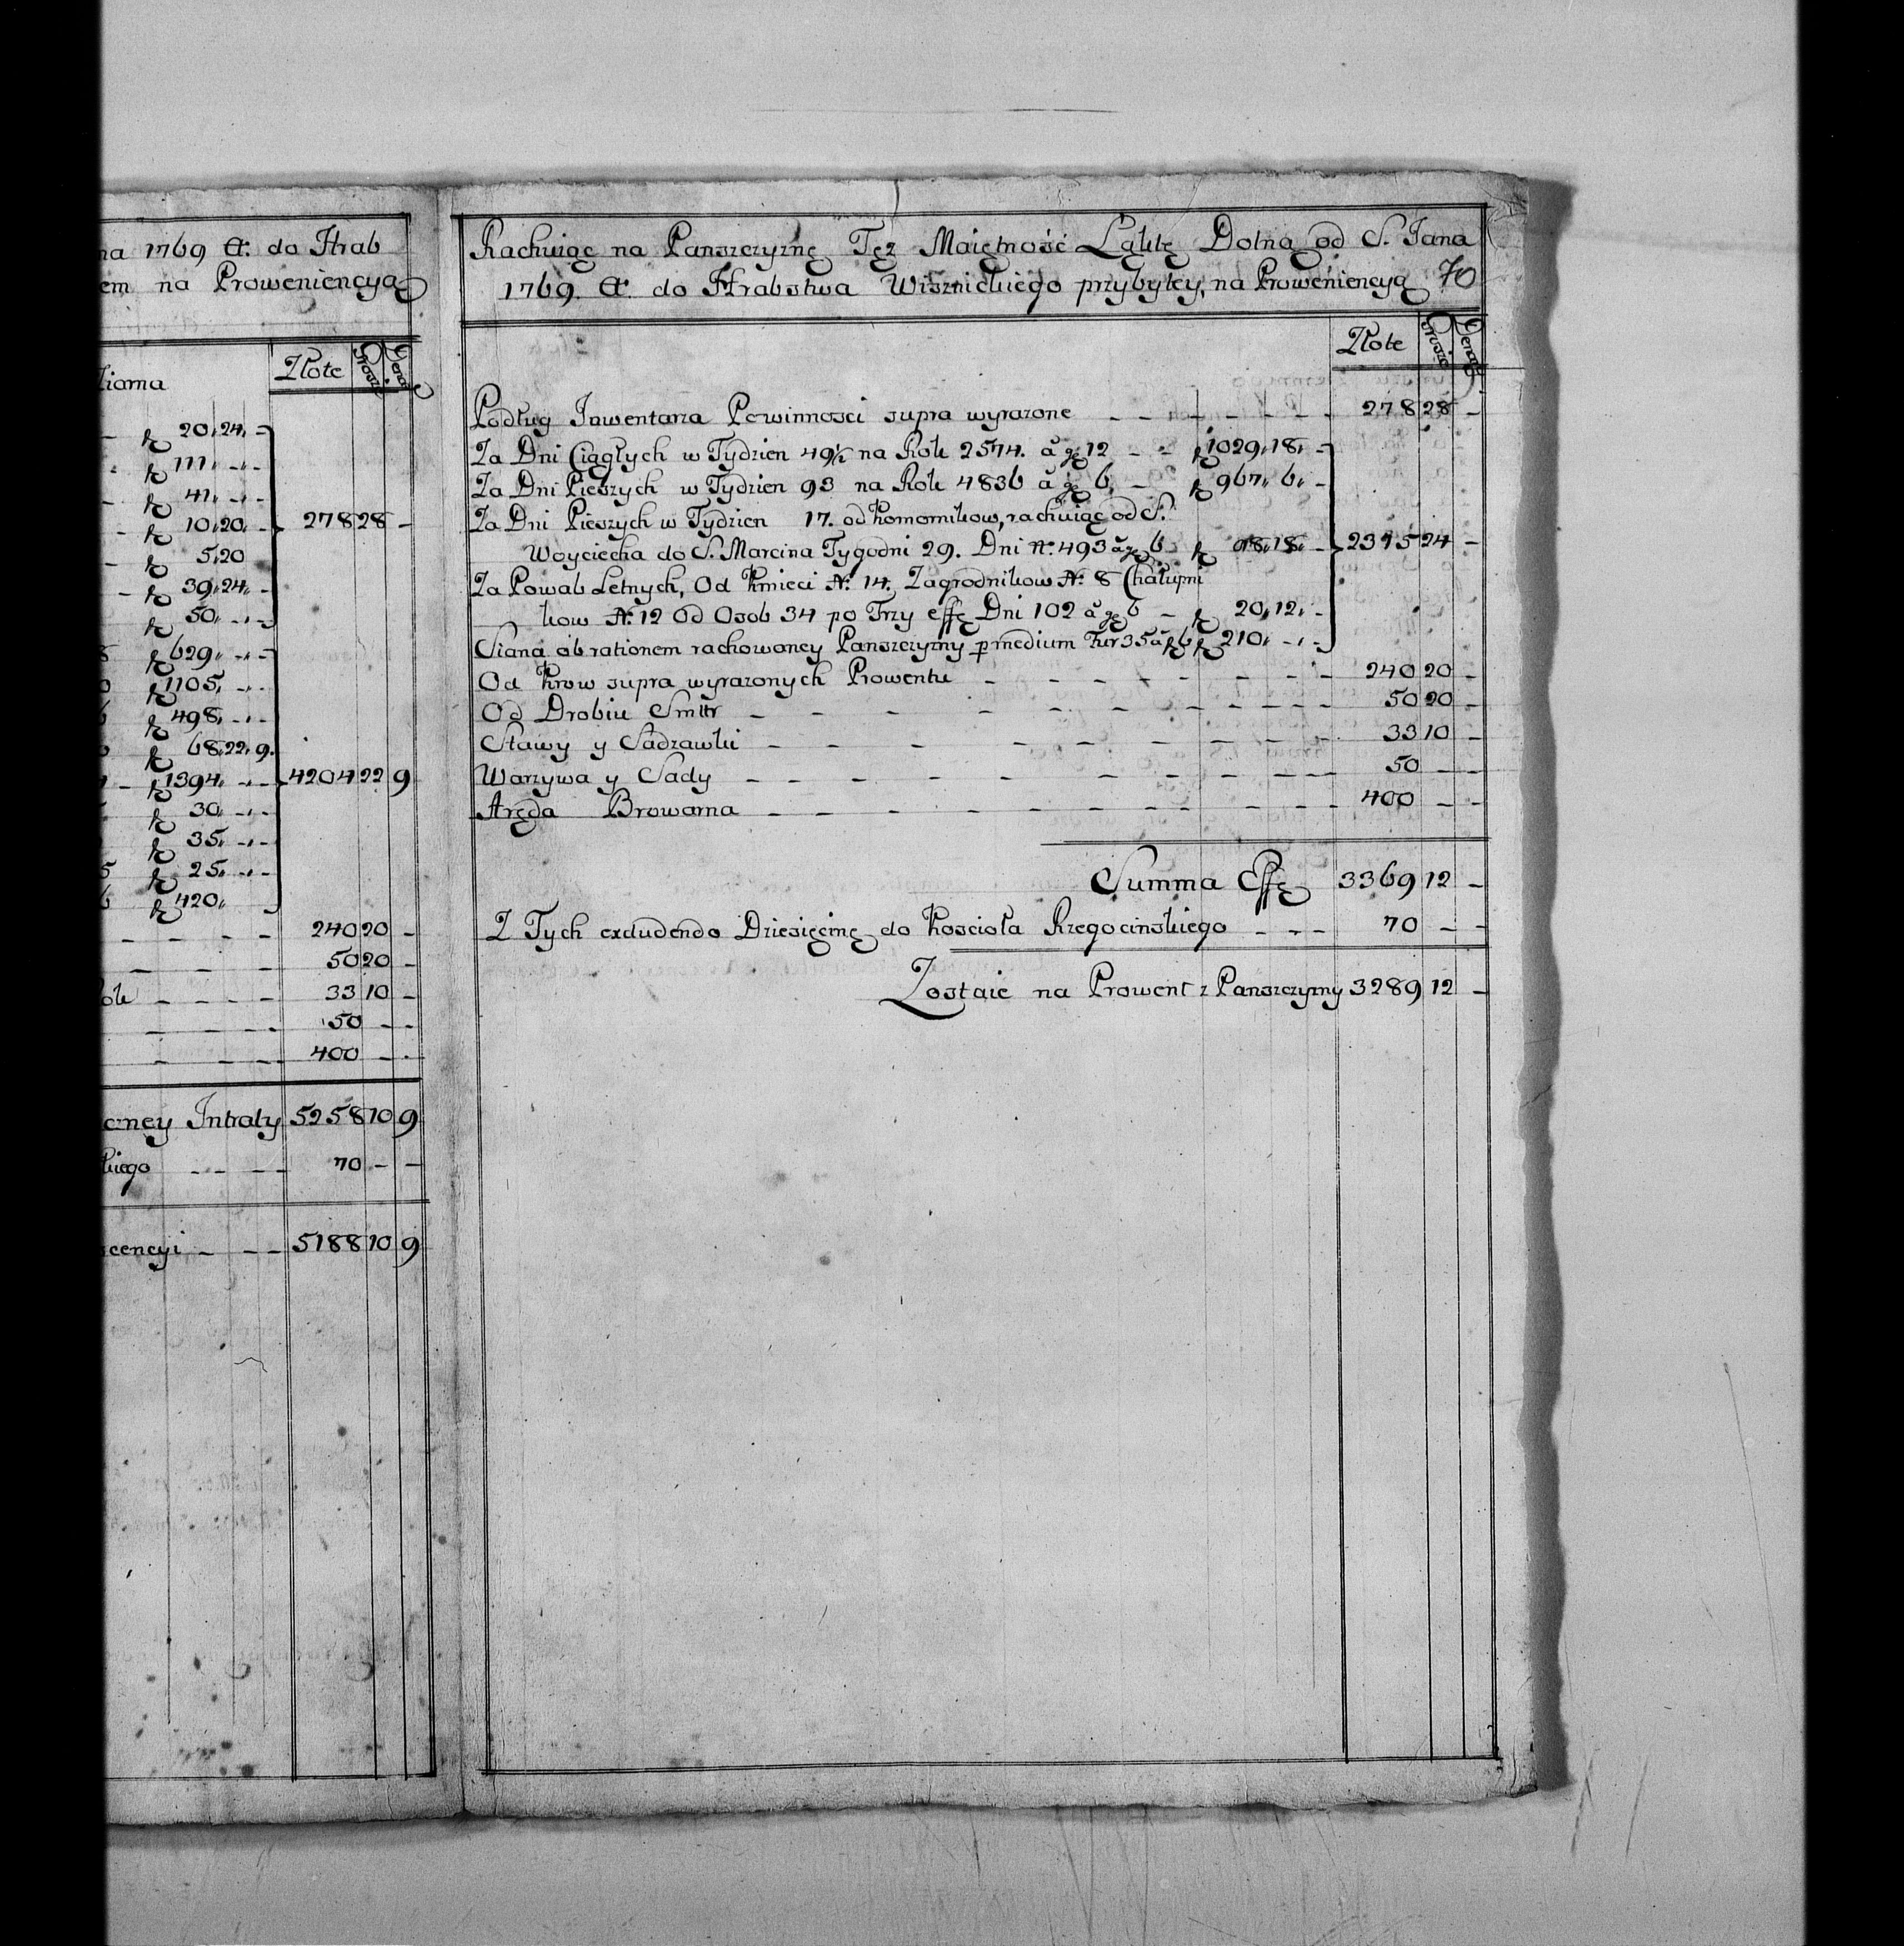 na 1769 A: do Hrab
em na Proweniencyą
Złote Grosze Dena
20.24.-
111.-.-
41.-.-
10.20.-
278 28 -
5.20
39.24.-
50.-.-
629.-.-
1105.-.-
498.-.-
68.22.9.
1394.-.-
4204 22 9
30.-.-
35.-.-
25.-.-
420.
240 20 -
50 20 -
33 10 -
50 - -
400 - -
czney Intraty 5258 10 9
kiego - - - - 70 - -
scencyi - - - 5188 10 9
Rachuiąc na Panszczyznę Tęż Maiętność Łąktę Dolną od S. Jana
1769. A: do Hrabstwa Wisznickiego przybyłey, na Proweniencyą 70
Złote Grosze Dena
Podług Inwentarza Powinnosci supra wyrazone - - - - - - - 278 28 -
Za Dni Ciągłych w Tydzien 49½ na Rok 2574. a gr 12 - - zł 1029.18.-
Za Dni Pieszych w Tydzien 93 na Rok 4836 a gr 6. - zł 967.6.-
Za Dni Pieszych w Tydzien 17. od Komornikow, rachuiąc od S.
Woyciecha do S. Marcina Tygodni 29. Dni N: 493 a gr 6 zł 98.18.- 2315 24 -
Za Powab Letnych, Od Kmieci N: 14. Zagrodnikow N: 8 Chałupni
kow N: 12 Od Osob 34 po Trzy effę Dni 102 a gr 6 - zł 20.12.-
Siana ob rationem rachowaney Panszczyzny p medium Fur 35 a zł 6 zł 210.-.-
Od Krow supra wyrazonych Prowentu - - - - - - - 240 20 -
Od Drobiu Smttr - - - - - - - - - 50 20 -
Stawy y Sadzawki - - - - - - - - 33 10 -
Warzywa y Sady - - - - - - - - - 50 - -
Aręda Browarna - - - - - - - - - 400 - -
Summa Effę 3369 12 -
Z Tych excludendo Dziesięcinę do Koscioła Rzegocinskiego - - - 70 - -
Zostaie na Prowent z Panszczyzny 3289 12 -